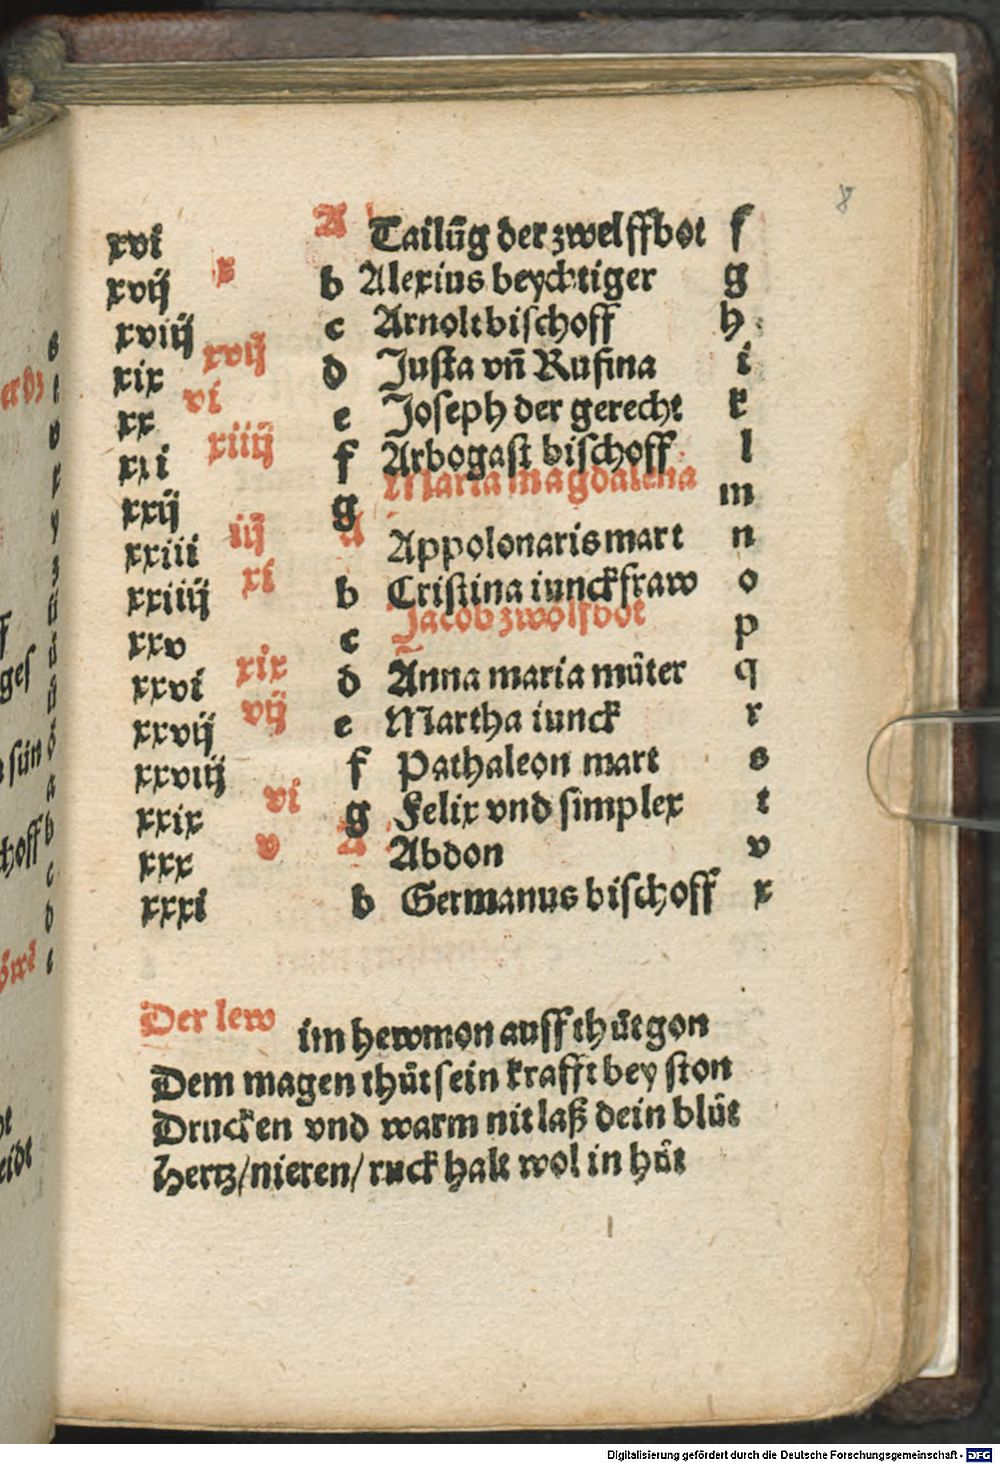 8
xvi A Tailūg der zwelffbot f
xvij x b Alexius beychtiger g
xviij c Arnolt bischoff h
xix xvij d Justa vñ Rufina i
xx vi e Joseph der gerecht k
xxi xiiij f Arbogast bischoff l
xxij g Maria magdalena m
xxiii iij A Appolonaris mart n
xxiiij xi b Cristina iunckfraw o
xxv c Jacob zwölfbot p
xxvi xix d Anna maria můter q
xxvij vij e Martha iunck r
xxviij f Pathaleon mart s
xxix vi g Felix vnd simplex t
xxx v A Abdon v
xxxi b Germanus bischoff x
Der lew im hewmon auff thůt gon
Dem magen thůt sein krafft bey ston
Drucken vnd warm nit laß dein blůt
Hertz/nieren/ruck halt wol in hůt
Digitalisierung gefördert durch die Deutsche Forschungsgemeinschaft - DFG